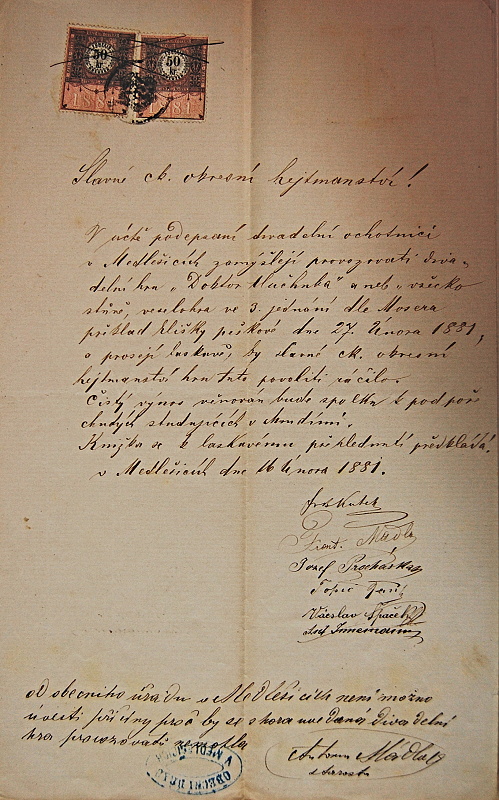 50 kr 50 kr
1881 1881
Slavné ck. okresní hejtmanství!
V úctě podepsaní divadelní ochotníci
v Medlešicích zamýšlejí provozovati diva-
delní hru „Doktor Mučenka" aneb „všecko
stůně, veselohra ve 3. jednání dle Mosera
překlad Elišky peškové dne 27. Února 1881,
a prosejí laskavě, by slavné ck. okresní
hejtmanství hru tuto povoliti ráčilo.
Čistý výnos věnovan bude spolku k podpoře
chudých studujících v Chrudimi.
Knížka se k laskavému přehlednutí předkládá.
v Medlešicích dne 16 února 1881.
Frant. Mádl
Jozef Procházka
Václav Špaček
od obecního úřadu v Medlešicích není možno
uvésti příčiny proč by se shora uvedená divadelní
hra provozovati nesměla
Antonín Mádl
starosta
OBECNÍ ÚŘAD
V MEDLEŠICÍCH